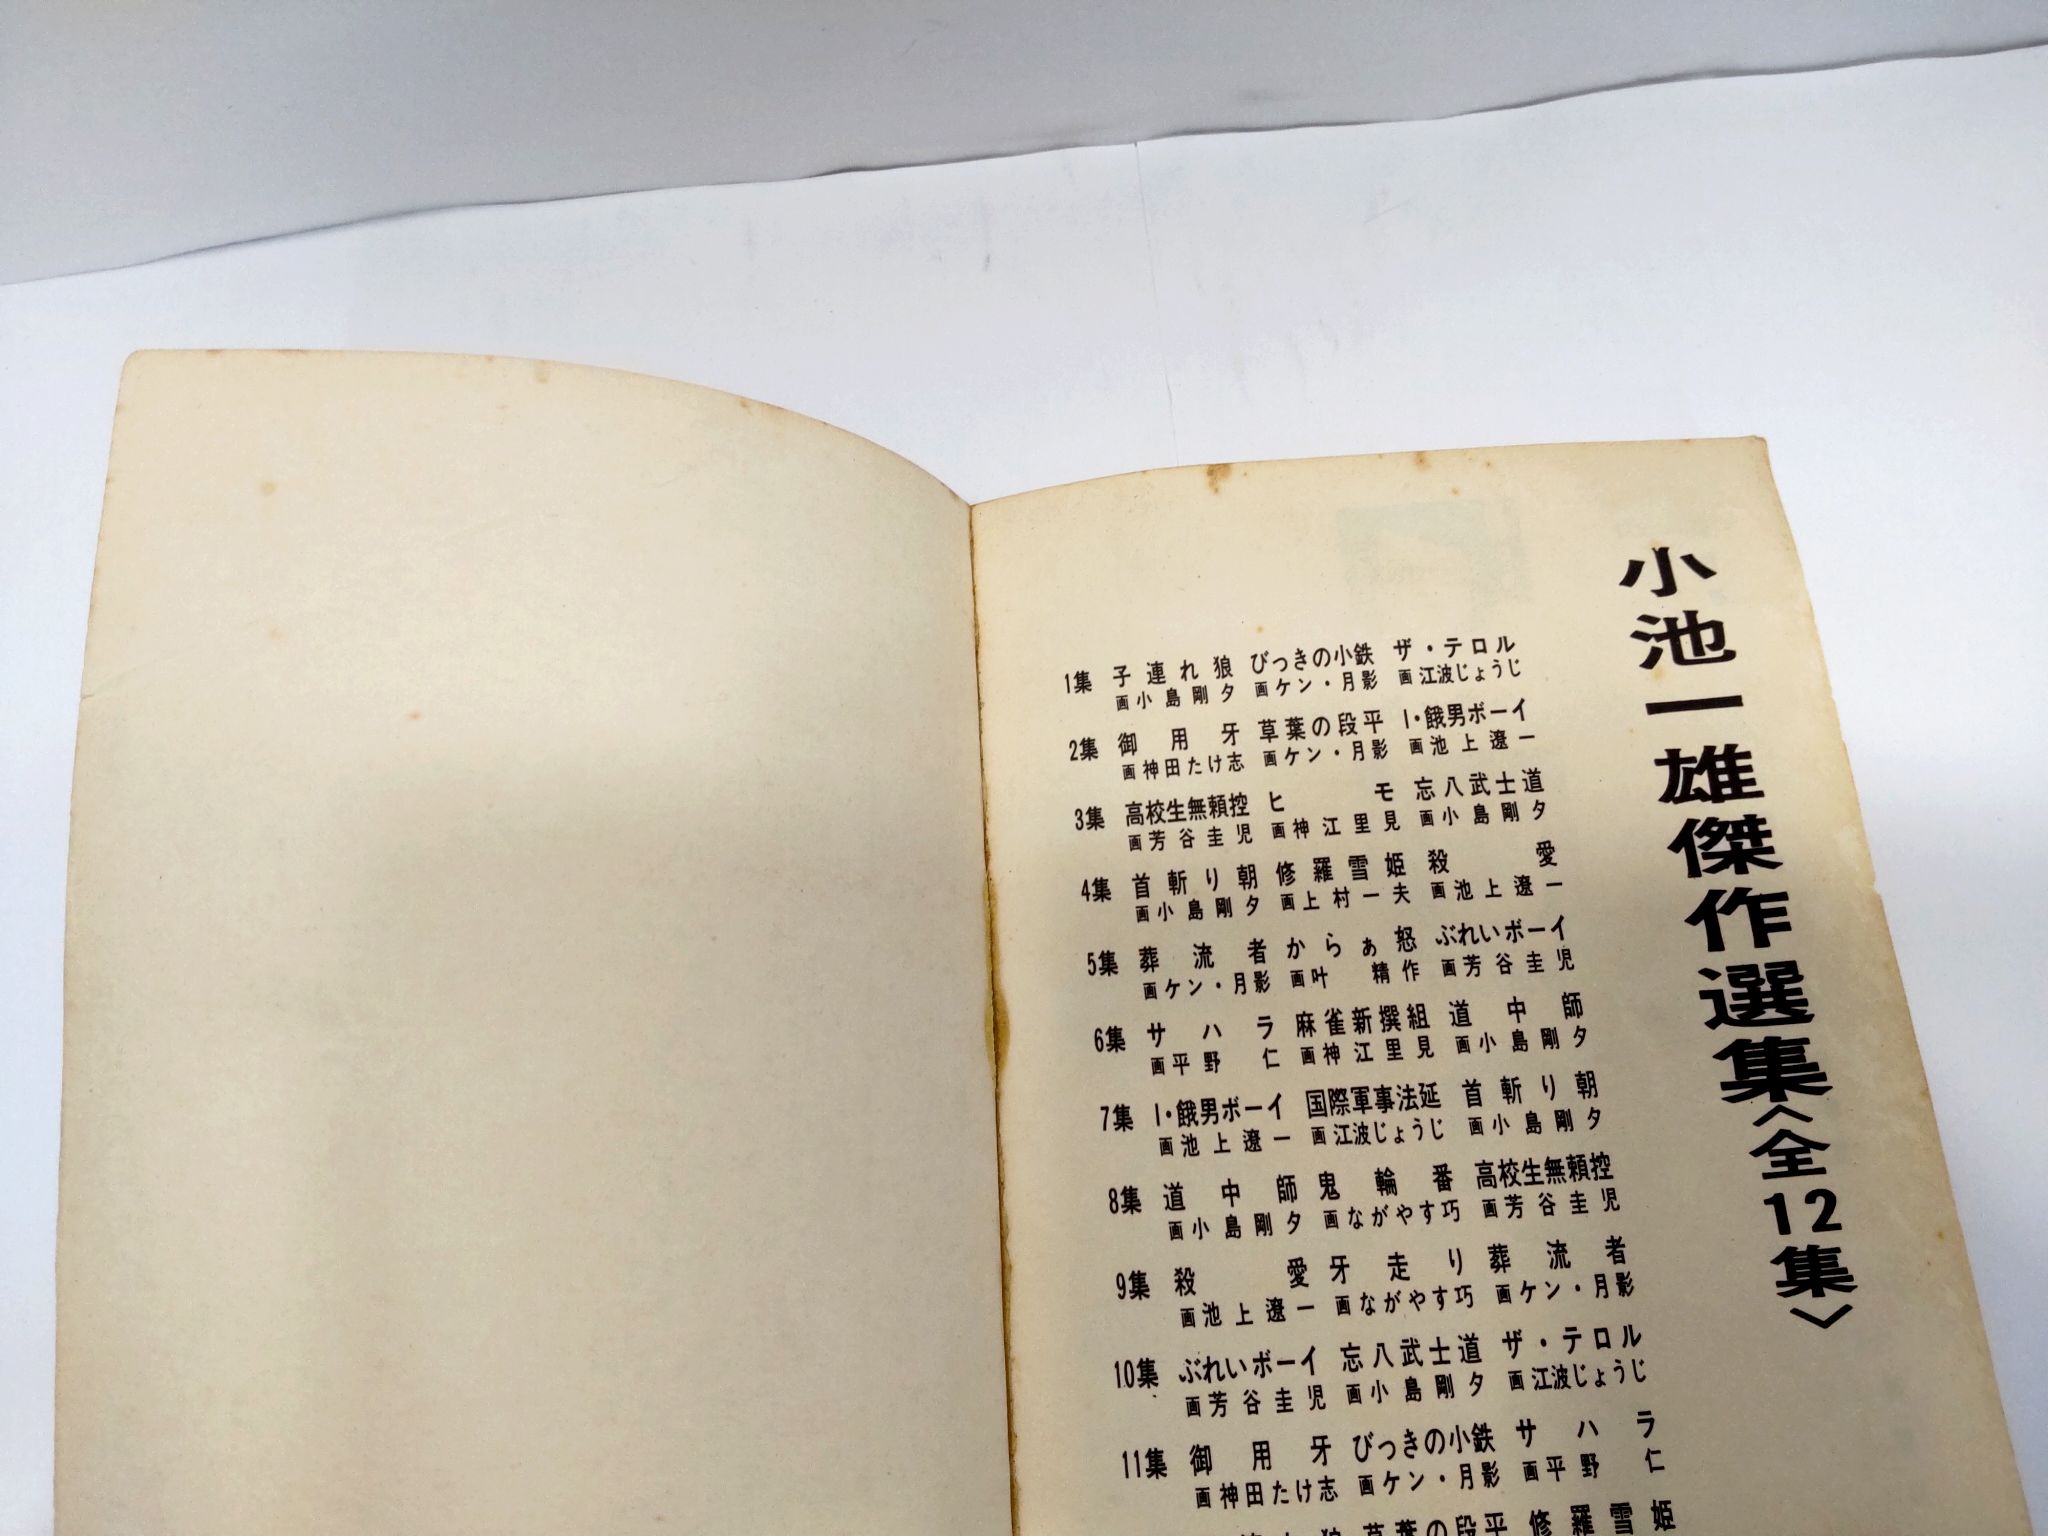 小池一雄傑作選集〈全12集〉
1集 子連れ狼 びっきの小鉄 ザ・テロル
画小島剛夕 画ケン・月影 画江波じょうじ
2集 御用牙 草葉の段平 I・餓男ボーイ
画神田たけ志 画ケン・月影 画池上遼一
3集 高校生無頼控 ヒモ 忘八武士道
画芳谷圭児 画神江里見 画小島剛夕
4集 首斬り朝 修羅雪姫 殺愛
画小島剛夕 画上村一夫 画池上遼一
5集 葬流者 からぁ怒 ぶれいボーイ
画ケン・月影 画叶精作 画芳谷圭児
6集 サハラ 麻雀新撰組 道中師
画平野仁 画神江里見 画小島剛夕
7集 I・餓男ボーイ 国際軍事法延 首斬り朝
画池上遼一 画江波じょうじ 画小島剛夕
8集 道中師 鬼輪番 高校生無頼控
画小島剛夕 画ながやす巧 画芳谷圭児
9集 殺愛 牙走り 葬流者
画池上遼一 画ながやす巧 画ケン・月影
10集 ぶれいボーイ 忘八武士道 ザ・テロル
画芳谷圭児 画小島剛夕 画江波じょうじ
11集 御用牙 びっきの小鉄 サハラ
画神田たけ志 画ケン・月影 画平野仁
狼 草葉の段平 修羅雪姫